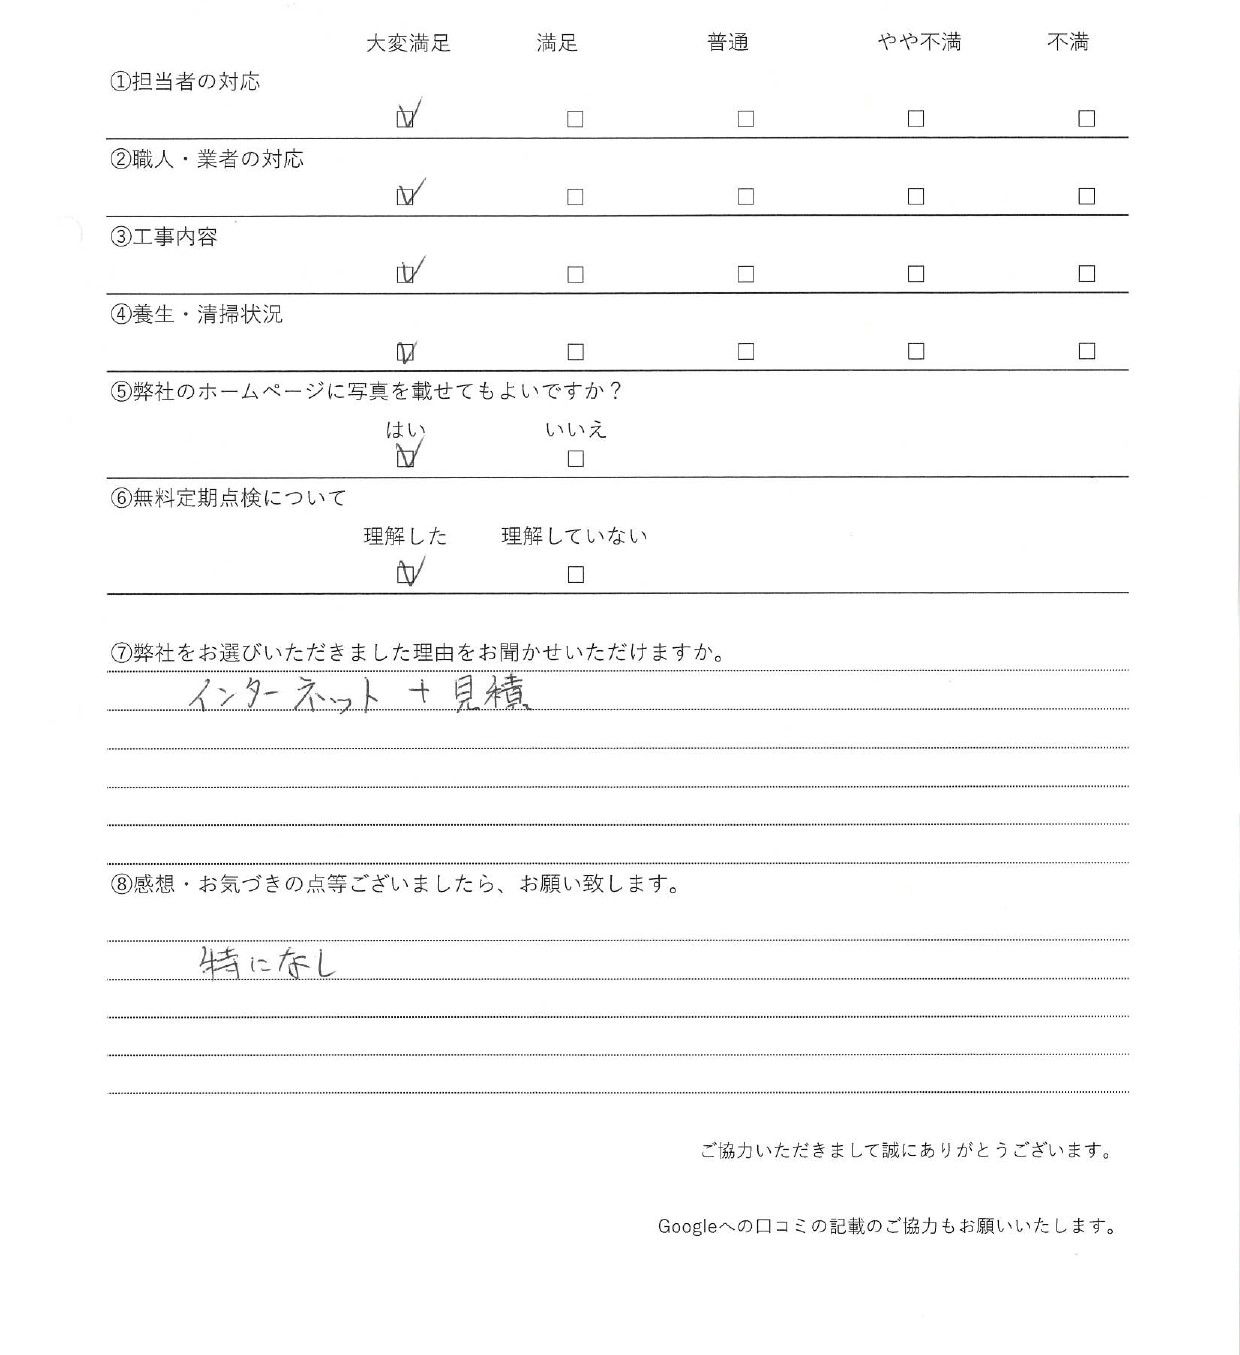 大変満足 満足 普通 やや不満 不満
①担当者の対応
②職人・業者の対応
③工事内容
④養生・清掃状況
⑤弊社のホームページに写真を載せてもよいですか？
はい いいえ
⑥無料定期点検について
理解した 理解していない
⑦弊社をお選びいただきました理由をお聞かせいただけますか。
インターネット + 見積
⑧感想・お気づきの点等ございましたら、お願い致します。
特になし
ご協力いただきまして誠にありがとうございます。
Googleへの口コミの記載のご協力もお願いいたします。